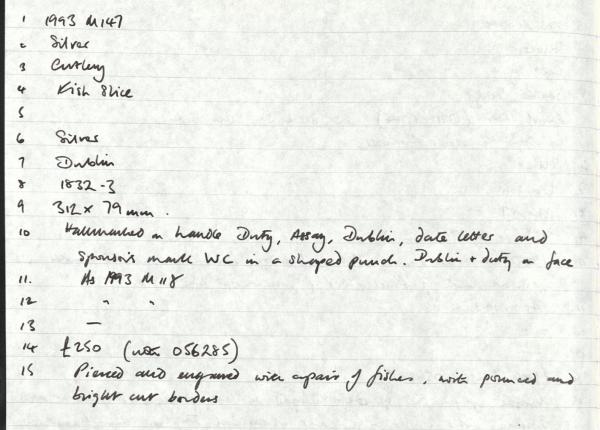 1 1993 M147
2 Silver
3 Cutlery
4 Fish Slice
5
6 Silver
7 Dublin
8 1832-3
9 312 x 79 mm.
10 Hallmarked on handle Duty, Assay, Dublin, date letter and
sponsor's mark WC in a shaped punch. Dublin + duty on face
11. As 1993 M118
12 " "
13 —
14 £250 (with 056285)
15 Pierced and engraved with a pair of fishes, with pounced and
bright cut borders